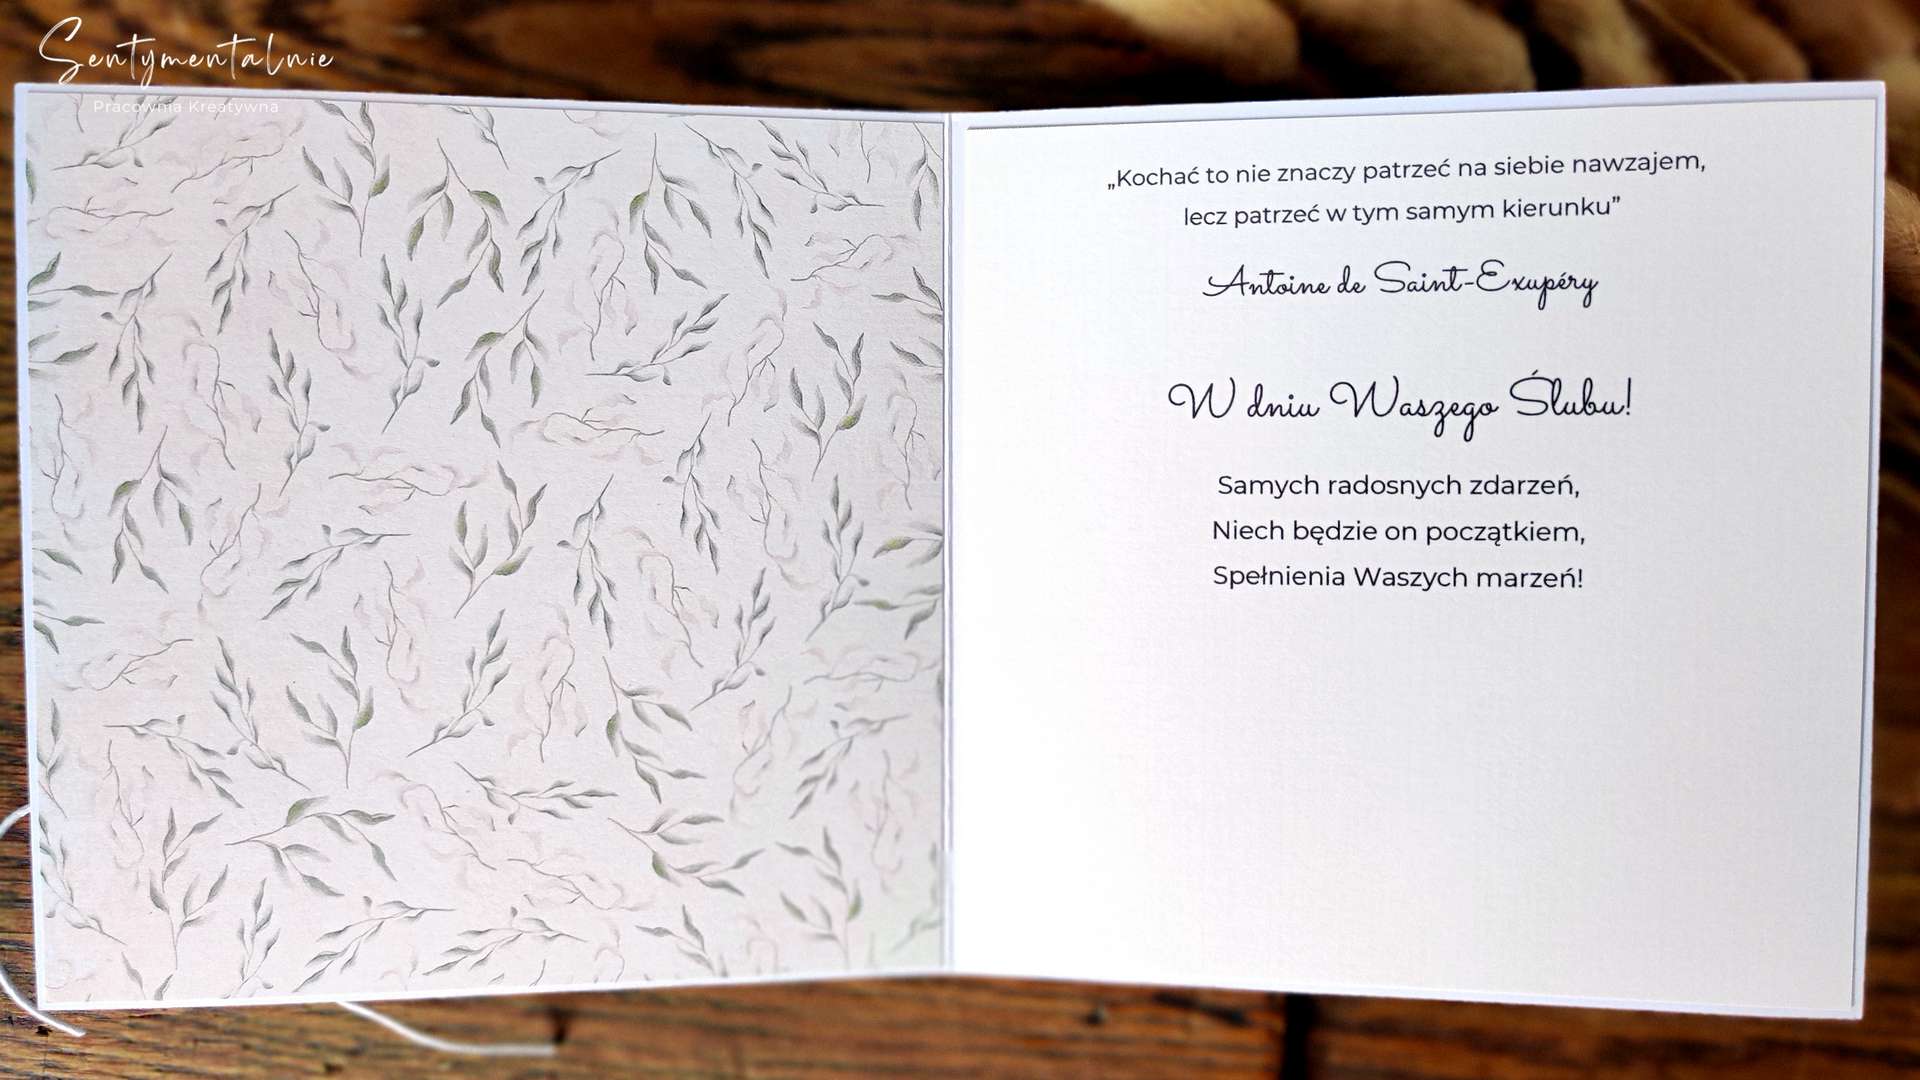 Sentymentalnie
Pracownia Kreatywna
„Kochać to nie znaczy patrzeć na siebie nawzajem,
lecz patrzeć w tym samym kierunku”
Antoine de Saint-Exupéry
W dniu Waszego Ślubu!
Samych radosnych zdarzeń,
Niech będzie on początkiem,
Spełnienia Waszych marzeń!